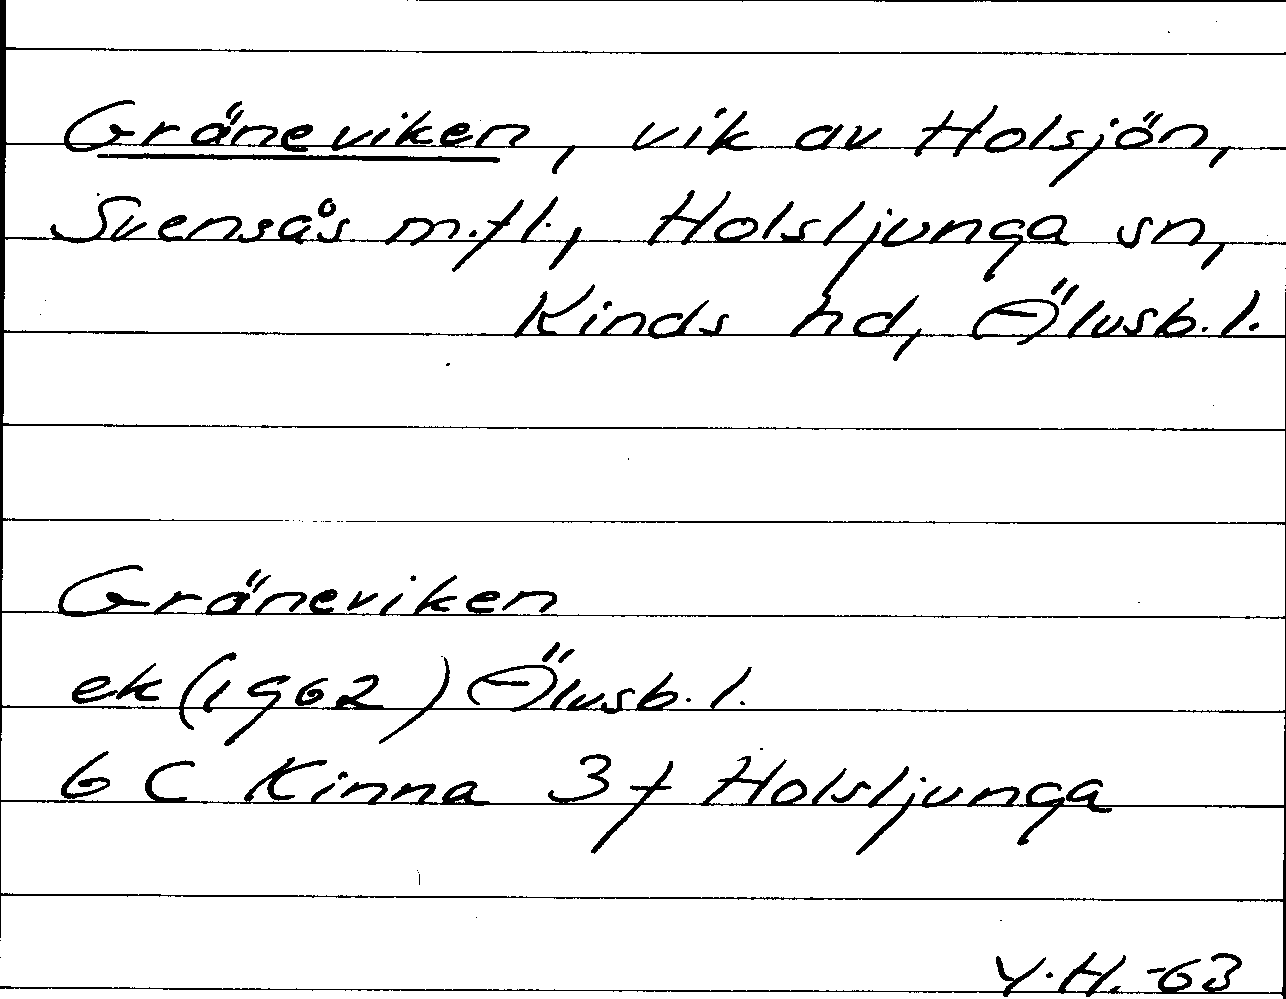 Gräneviken, vik av Holsjön,
Svensås m.fl., Holsljunga sn,
Kinds hd, Älvsb.l.
Gräneviken
ek (1962) Älvsb.l.
6 C Kinna 3 f Holsljunga
Y.H. -63